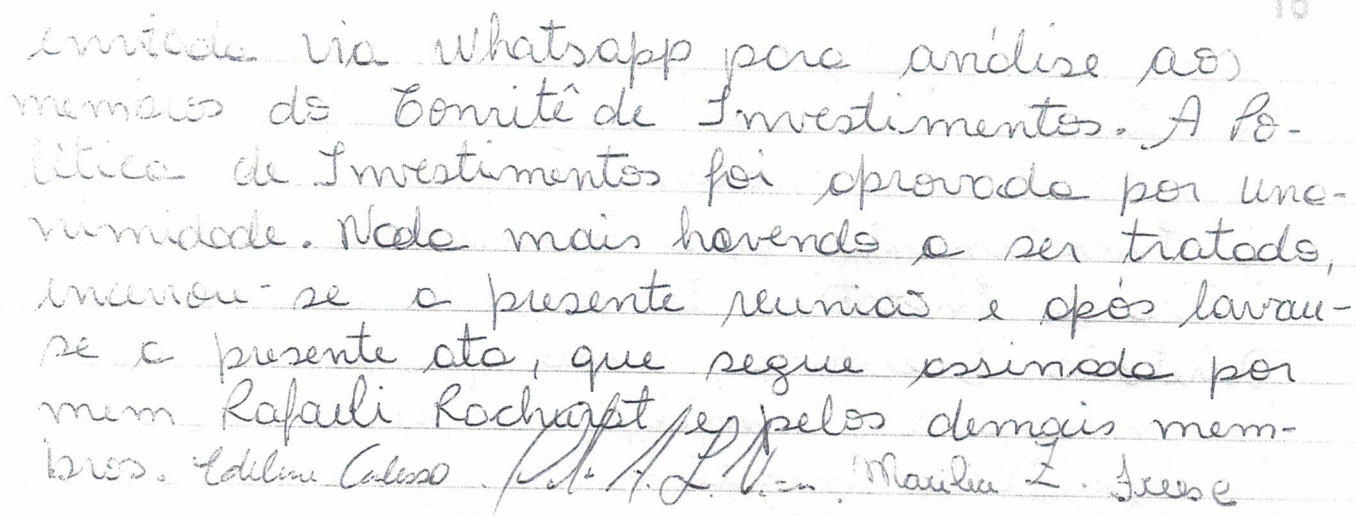 16
enviada via whatsapp para análise aos
membros do Comitê de Investimentos. A Po-
lítica de Investimentos foi aprovada por una-
nimidade. Nada mais havendo a ser tratado,
encerrou-se a presente reunião e após lavrou-
se a presente ata, que segue assinada por
mim Rafaeli e pelos demais mem-
bros. Marilia Z.